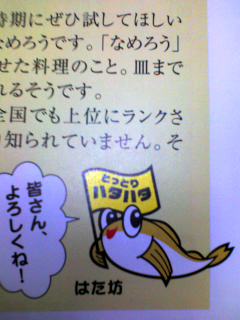 時期にぜひ試してほしい
なめろうです。「なめろう」
せた料理のこと。皿まで
れるそうです。
全国でも上位にランクさ
り知られていません。そ
皆さん、
よろしくね!
とっとり
ハタハタ
はた坊